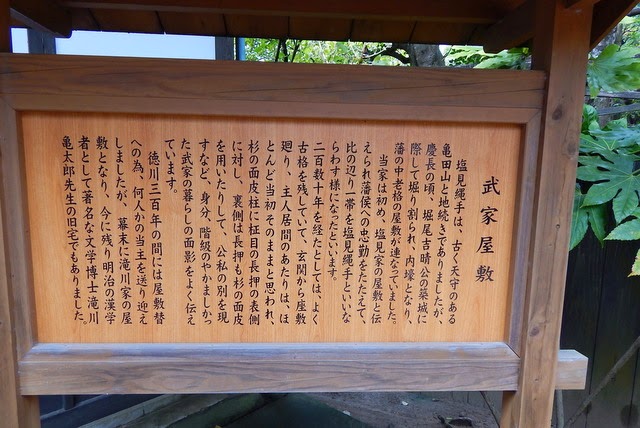 武家屋敷
塩見繩手は、古く天守のある
亀田山と地続きでありましたが、
慶長の頃、堀尾吉晴公の築城に
際して堀り割られ、内壕となり、
藩の中老格の屋敷が連なっていました。
当家は初め、塩見家の屋敷と伝
えられ藩侯への忠勤をたたえて、
比の辺り一帯を塩見繩手といいな
らわす様になったといいます。
二百数十年を経たとしては、よく
古格を残していて、玄関から座敷
廻り、主人居間のあたりは、ほ
とんど当初そのままと思われ、
杉の面皮柱に柾目の長押の表側
に対し、裏側は長押も杉の面皮
を用いたりして、公私の別を現
すなど、身分、階級のやかましかっ
た武家の暮らしの面影をよく伝え
ています。
徳川三百年の間には屋敷替
への為、何人かの当主を送り迎え
しましたが、幕末に滝川家の屋
敷となり、今に残り明治の漢学
者として著名な文学博士滝川
亀太郎先生の旧宅でもありました。